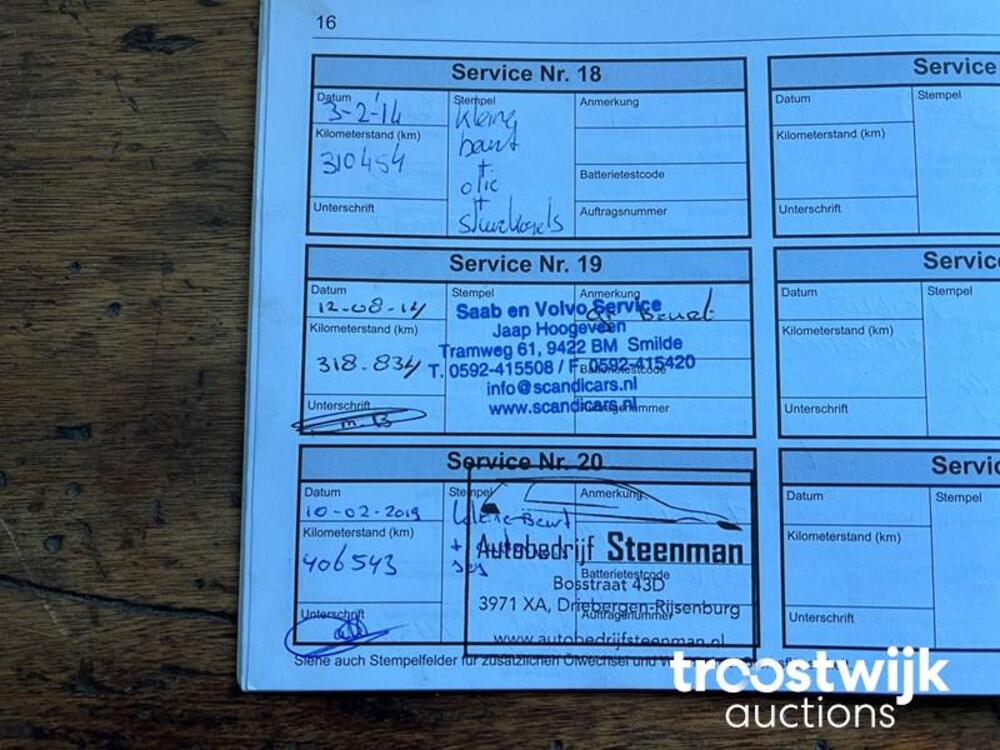 16
Service Nr. 18
Datum
3-2-'14
Stempel
Kleine
beurt
+
olie
+
Stuurkogels
Anmerkung
Kilometerstand (km)
310454
Batterietestcode
Unterschrift
Auftragsnummer
Service
Datum
Stempel
Kilometerstand (km)
Unterschrift
Service Nr. 19
Datum
12-08-14
Stempel
Anmerkung
Beurt
Saab en Volvo Service
Jaap Hoogeveen
Tramweg 61, 9422 BM Smilde
T. 0592-415508 / F. 0592-415420
info@scandicars.nl
www.scandicars.nl
Kilometerstand (km)
318.834
Batterietestcode
Unterschrift
Auftragsnummer
Service
Datum
Stempel
Kilometerstand (km)
Unterschrift
Service Nr. 20
Datum
10-02-2019
Stempel
Kleine Beurt
+
Anmerkung
Autobedrijf Steenman
Bosstraat 43D
3971 XA, Driebergen-Rijsenburg
www.autobedrijfsteenman.nl
Kilometerstand (km)
406543
Batterietestcode
Unterschrift
Auftragsnummer
Servic
Datum
Stempel
Kilometerstand (km)
Unterschrift
Siehe auch Stempelfelder für zusätzlichen Ölwechsel und
troostwijk
auctions